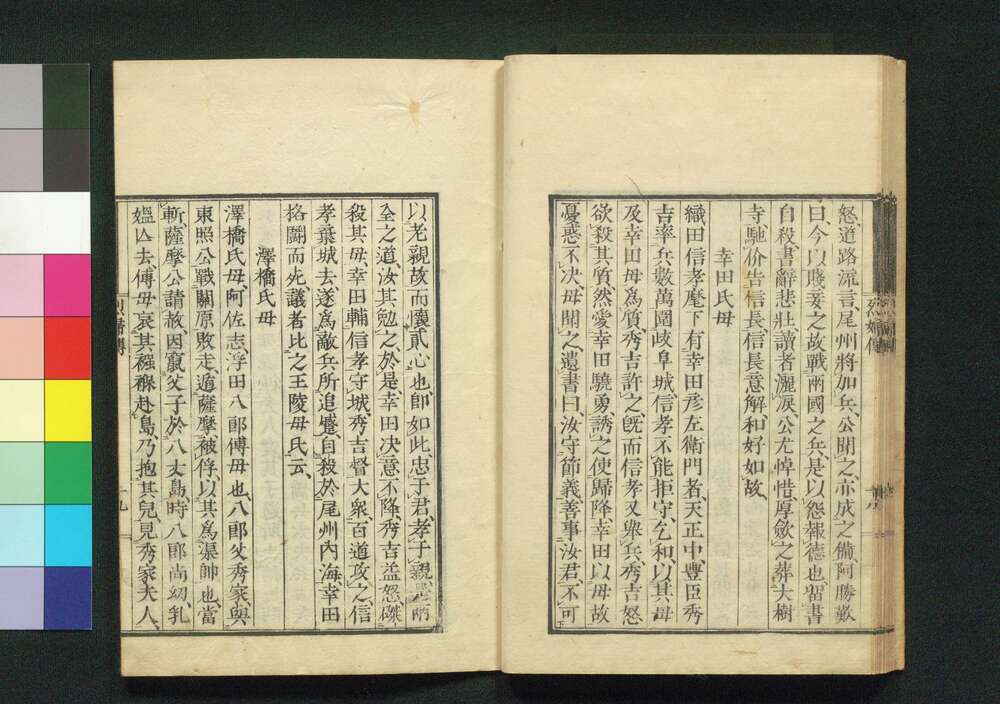 怒、道路流言、尾州將加兵、公聞之、亦成之備、阿勝歎
曰、今以賤妾之故、戰兩國之兵、是以怨報德也、留書
自殺、書辭悲壯、讀者灑淚、公尤悼惜、厚歛之、葬大樹
寺、馳价告信長、信長意解、和好如故、
幸田氏母
織田信孝麾下有幸田彦左衛門者、天正中、豐臣秀
吉率兵數萬圍岐阜城、信孝不能拒守、乞和、以其母
及幸田母爲質、秀吉許之、既而信孝又舉兵、秀吉怒
欲殺其質、然愛幸田驍勇、誘之使歸降、幸田以母故
憂惑不决、母聞之、遺書曰、汝守節義、善事汝君、不可
以老親故而懷貳心也、即如此、忠于君、孝于親、兩
全之道、汝其勉之、於是幸田决意不降、秀吉益怒、磔
殺其母、幸田輔信孝守城、秀吉督大衆、百道攻之、信
孝棄城去、遂爲敵兵所追蹙、自殺於尾州內海、幸田
挌鬪而死、議者比之王陵母氏云、
澤橋氏母
澤橋氏母、阿佐志、浮田八郎傅母也、八郎父秀家與
東照公戰關原、敗走、適薩摩被俘、以其爲渠帥也、當
斬、薩摩公請赦、因竄父子於八丈島、時八郎尚幼、乳
媼亾去、傅母哀其襁褓赴島、乃抱其兒、見秀家夫人、
烈婦傳